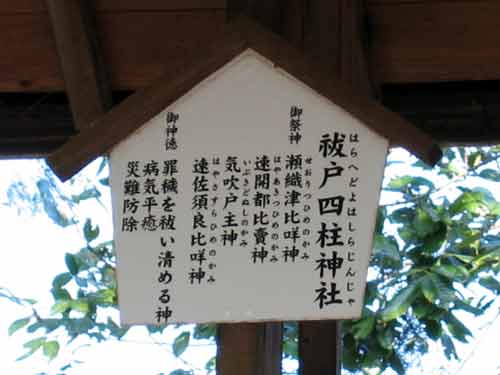 はらへどよはしらじんじゃ
祓戸四柱神社
御祭神
せおりつひめのかみ
瀬織津比咩神
はやあきつひめのかみ
速開都比賣神
いぶきどぬしのかみ
気吹戸主神
はやさすらひめのかみ
速佐須良比咩神
御神徳
罪穢を祓い清める神
病気平癒
災難防除